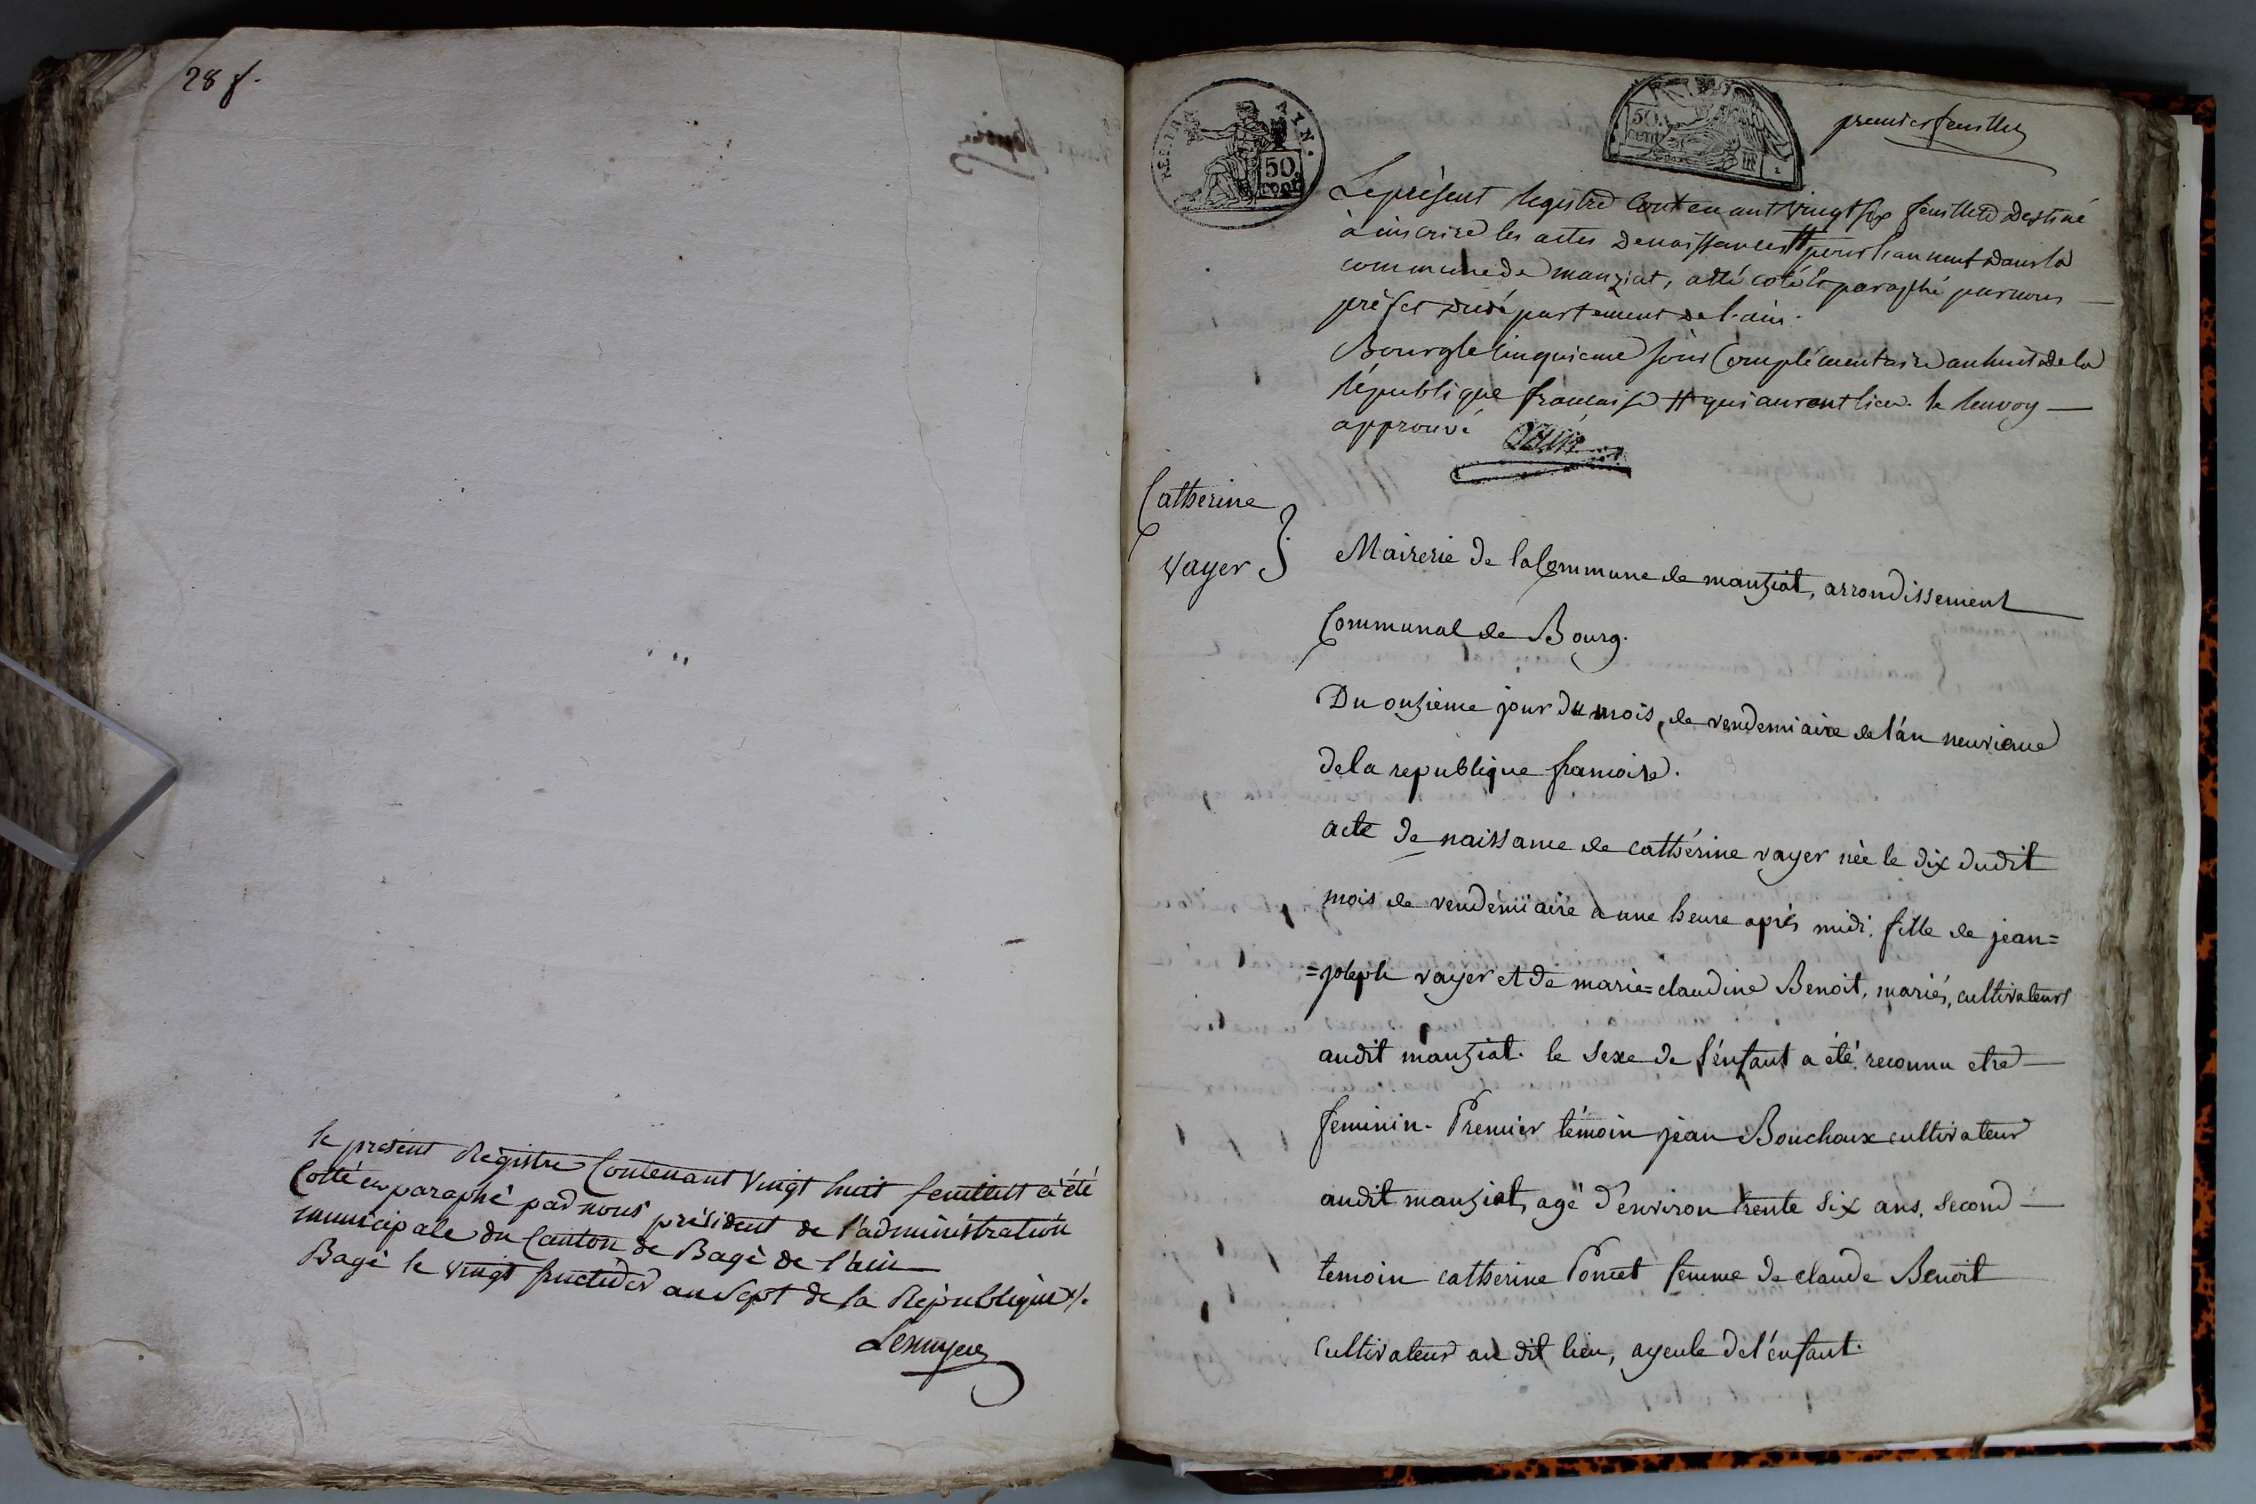 28 f.
le present Registre Contenant Vingt huit feuillets a été
Cotté et paraphé par nous président de l'administration
municipale du Canton de Bagé de l'ain
Bagé le vingt fructidor an Sept de la République /.
premier feuillet
50
cent
50
cent
Le présent Registre Contenant Vingt six feuillets destiné
à inscrire les actes de naissances # pour l'an neuf dans la
commune de manziat, a été coté et paraphé par nous
préfet du département de l'ain.
Bourg le cinquieme jour Complémentaire an huit de la
République française # qui auront lieu. le Renvoy
approuvé
Catherine
vayer }
Mairerie de la Commune de manziat, arrondissement
Communal de Bourg.
Du onzieme jour du mois de vendemiaire de l'an neuvieme
de la republique francoise.
acte de naissance de cathérine vayer née le dix dudit
mois de vendémiaire a une heure après midi. fille de jean=
=joseph vayer et de marie=claudine Benoit, mariés, cultivateurs
audit manziat. le sexe de l'énfant a été reconnu etre
feminin. Premier témoin jean Bouchoux cultivateur
audit manziat, agé d'environ trente six ans, second
temoin catherine Poncet femme de claude Benoit
cultivateur au dit lieu, ayeule de l'énfant.